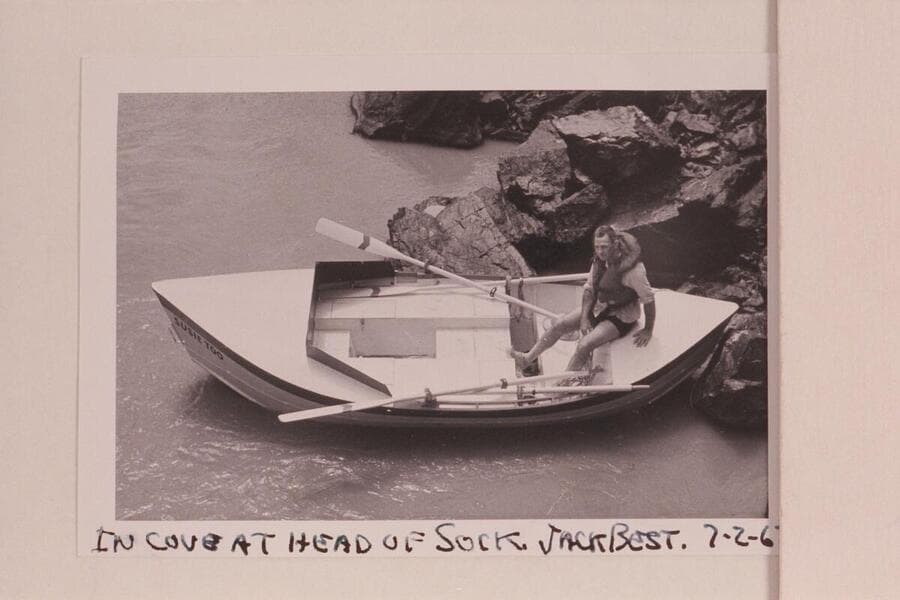 SUSIE TOO
IN COVE AT HEAD OF SOCK. JACK BEST. 7-2-6